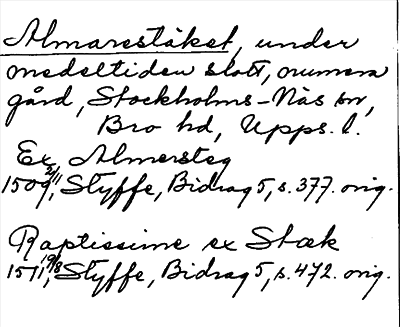 Almarestäket, under
medeltiden slott, numera
gård, Stockholms-Näs sn,
Bro hd, Upps. l.
Ex Almersteg
1509 2/11, Styffe, Bidrag 5, s. 377. orig.
Raptissime ex Stæk
1511 19/8, Styffe, Bidrag 5, s. 472. orig.